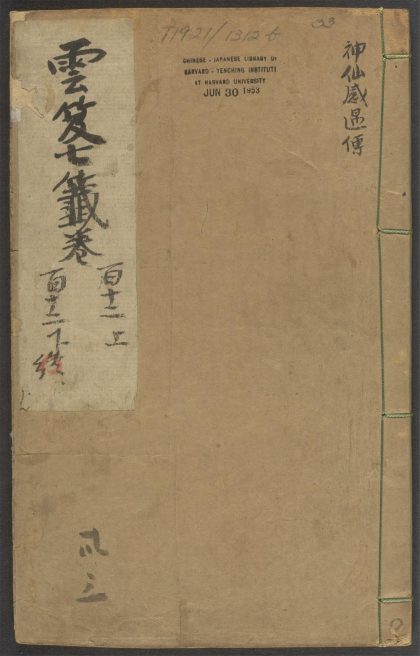 T1921/1312b
33
CHINESE - JAPANESE LIBRARY OF
HARVARD - YENCHING INSTITUTE
AT HARVARD UNIVERSITY
JUN 30 1953
神仙感遇傳
雲笈七籤卷
百十二上
百十二下